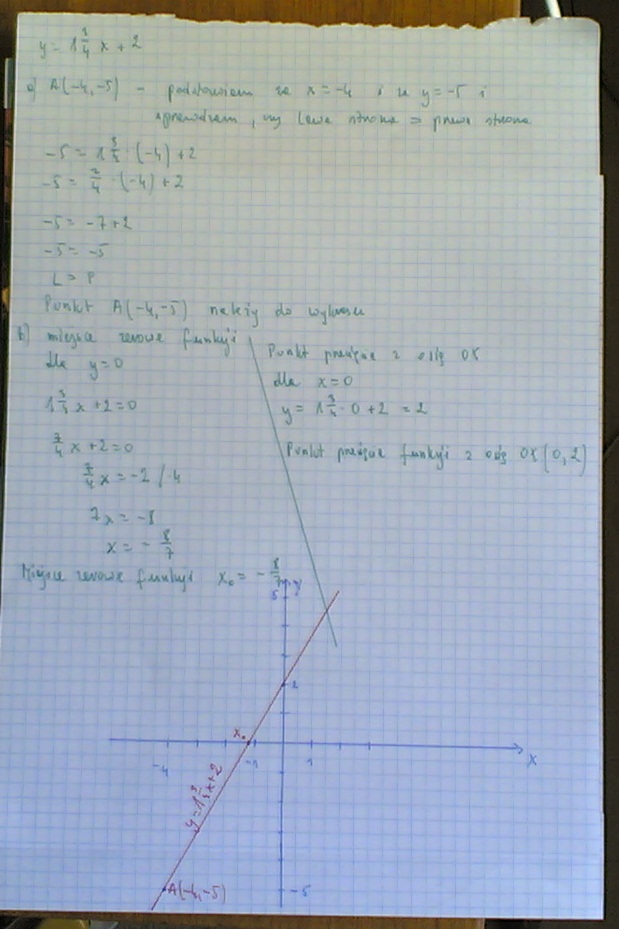 y = 1 3/4 x + 2
a) A(-4,-5) - podstawiam za x = -4 i za y = -5 i
sprawdzam, czy lewa strona = prawa strona
-5 = 1 3/4 · (-4) + 2
-5 = 7/4 · (-4) + 2
-5 = -7 + 2
-5 = -5
L = P
Punkt A(-4,-5) należy do wykresu
b) miejsce zerowe funkcji
dla y = 0
1 3/4 x + 2 = 0
7/4 x + 2 = 0
7/4 x = -2 / · 4
7x = -8
x = - 8/7
Miejsce zerowe funkcji x₀ = - 8/7
Punkt przecięcia z osią OY
dla x = 0
y = 1 3/4 · 0 + 2 = 2
Punkt przecięcia funkcji z osią OY (0,2)
y
5
2
x₀
-4
-1
1
x
y = 1 3/4 x + 2
A(-4,-5)
-5